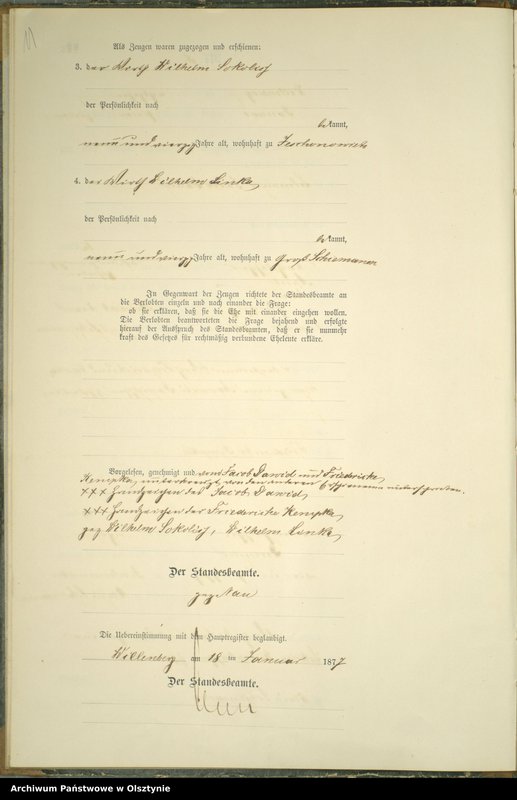 Als Zeugen waren zugezogen und erschienen:
3. der Wirth Wilhelm Sokoliß
der Persönlichkeit nach
bekannt,
neun und vierzig Jahre alt, wohnhaft zu
4. der Wirth Wilhelm Linka,
der Persönlichkeit nach
bekannt,
neun und vierzig Jahre alt, wohnhaft zu Groß Schiemanen
In Gegenwart der Zeugen richtete der Standesbeamte an
die Verlobten einzeln und nach einander die Frage:
ob sie erklären, daß sie die Ehe mit einander eingehen wollen.
Die Verlobten beantworteten die Frage bejahend und erfolgte
hierauf der Ausspruch des Standesbeamten, daß er sie nunmehr
kraft des Gesetzes für rechtmäßig verbundene Eheleute erkläre.
Vorgelesen, genehmigt und von Jacob Dawid und Friedericke
Kempka, unterkreuzt, von den anderen
+++ Handzeichen des Jacob Dawid,
+++ Handzeichen der Friedericke Kempka,
gez. Wilhelm Sokoliß, Wilhelm Linka,
Der Standesbeamte.
gez.
Die Uebereinstimmung mit dem Hauptregister beglaubigt.
Willenberg am 18 ten Januar 1877
Der Standesbeamte.
Archiwum Państwowe w Olsztynie